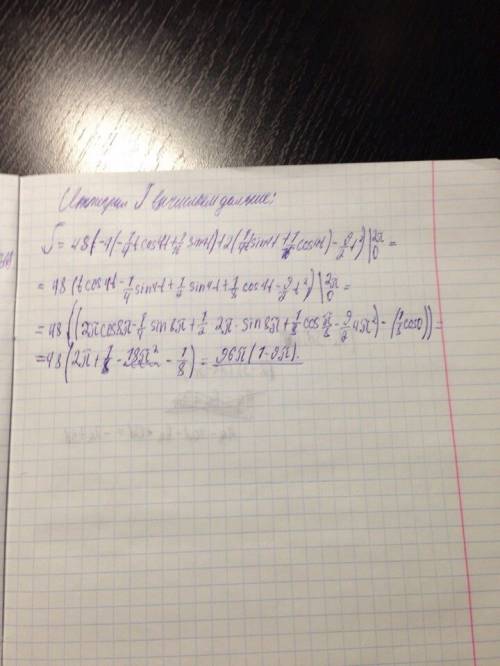 Интеграл J вычисляем дальше:
J = 48(-4(-1/4 t cos4t + 1/16 sin4t) + 2(1/4 t sin4t + 1/16 cos4t) - 9/2 t²)|₀^2π =
= 48(t cos4t - 1/4 sin4t + 1/2 sin4t + 1/8 cos4t - 9/2 t²)|₀^2π =
= 48((2π cos8π - 1/4 sin8π + 1/2 2π · sin8π + 1/8 cos8π - 9/2 4π²) - (1/8 cos0)) =
= 48(2π + 1/8 - 18π² - 1/8) = 96π(1-9π).